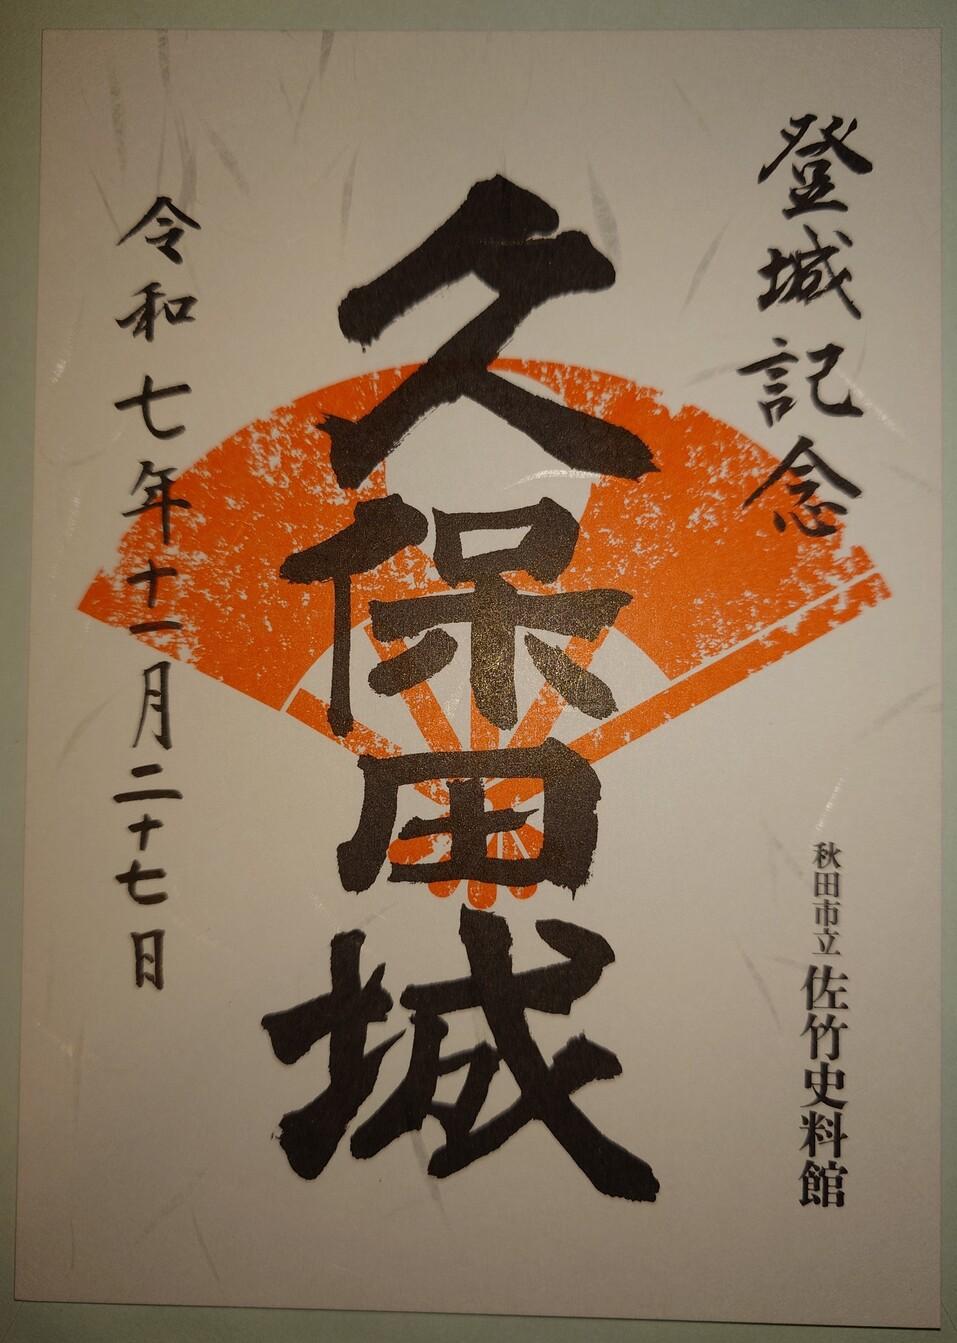 登城記念
久保田城
令和七年十一月二十七日
秋田市立佐竹史料館